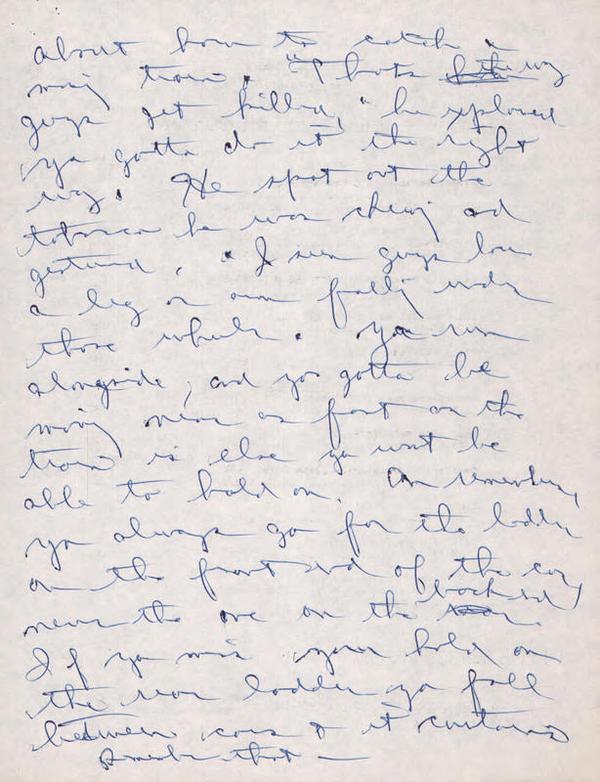 about how to catch a
moving train. "Thats the way
guys get killed," he explained
ya gotta do it the right
way. He spat out the
tobacco he was chewing and
gestured. "I seen guys lose
a leg or arm falling under
those wheels. Ya run
alongside, and you gotta be
moving near as fast as the
train is else ya wont be
able to hold on. An remember,
ya always go for the ladder
on the front end of the car,
never the one on the back end
If ya miss your hold on
the rear ladder ya fall
between cars & it curtains
Remember that —